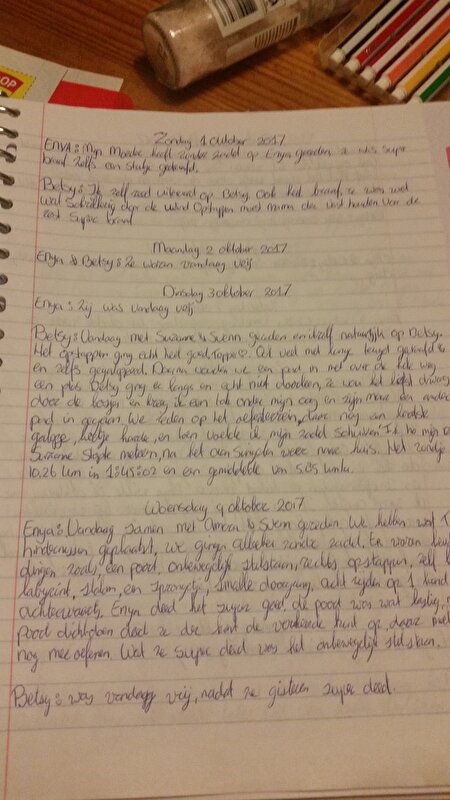 OP
Zondag 1 Oktober 2017
Enya: Mijn Moeder heeft zonder zadel op Enya gereden ze was super
braaf zelfs een stukje galopeerd.
Betsy: Ik zelf reed uiteraard op Betsy. Ook heel braaf, ze was wel
wat door de wind. Opstappen moet mama der vast houden voor de
rest super braaf
Maandag 2 oktober 2017
Enya & Betsy: Ze waren vandaag vrij
Dinsdag 3 oktober 2017
Enya: Zij was vandaag vrij
Betsy: Vandaag met Suzanne & Svenn gereden en ikzelf natuurlijk op Betsy.
Het opstappen ging echt heel goed, topper. Ook veel met lange teugel
en zelfs gegalopeerd. Daarna wouden we een pad in met over de hele weg
een plas Betsy ging er langs en acht niet doorheen, ze van het liefst
door de bosjes en kreeg ik een tak onder mijn oog en zijn maar een andere
pad in gegaan. We reden op het, daar nog een laatste
galopje, beetje harde, en toen voelde ik mijn zadel schuiven. Ik ho, mijn
Suzanne stapte meteen, na het weer naar huis. Het rondje
10,26 km in 1:45:02 en een gemiddelde van 5.85 km/u.
Woensdag 4 oktober 2017
Enya: Vandaag samen met Amora & Svenn gereden. We hebben wat
hindernissen geplaatst, we gingen allebei zonder zadel. Er waren
dingen zoals, een poort, onbeweeglijk stilstaan, rechts opstappen,
labyrint, slalom, en sprongetje, smalle doorgang, acht rijden op 1 hand
achterwaarts. Enya deed het super goed, de poort was wat lastig,
poort dicht doen deed ze der kont de verkeerde kant op, daar
nog mee oefenen. Wat ze super deed was het onbeweeglijk stilstaan.
Betsy: was vandaag vrij, nadat ze gisteren super deed.